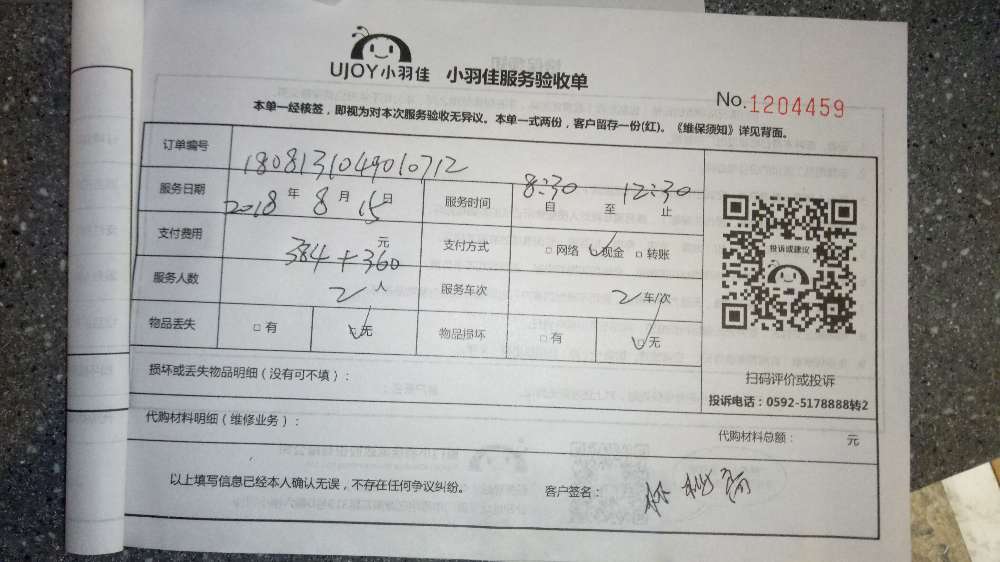 UJOY小羽佳 小羽佳服务验收单
No.1204459
本单一经核签，即视为对本次服务验收无异议。本单一式两份，客户留存一份(红)。《维保须知》详见背面。
订单编号 1808131049010712
服务日期 2018 年 8 月 15 日 服务时间 8:30 自 至 12:30 止
支付费用 384+360 元 支付方式 □ 网络 ☑ 现金 □ 转账
服务人数 2 人 服务车次 2 车/次
物品丢失 □ 有 ☑ 无 物品损坏 □ 有 ☑ 无
投诉或建议
扫码评价或投诉
投诉电话：0592-5178888转2
损坏或丢失物品明细（没有可不填）：
代购材料明细（维修业务）：
代购材料总额： 元
以上填写信息已经本人确认无误，不存在任何争议纠纷。 客户签名：